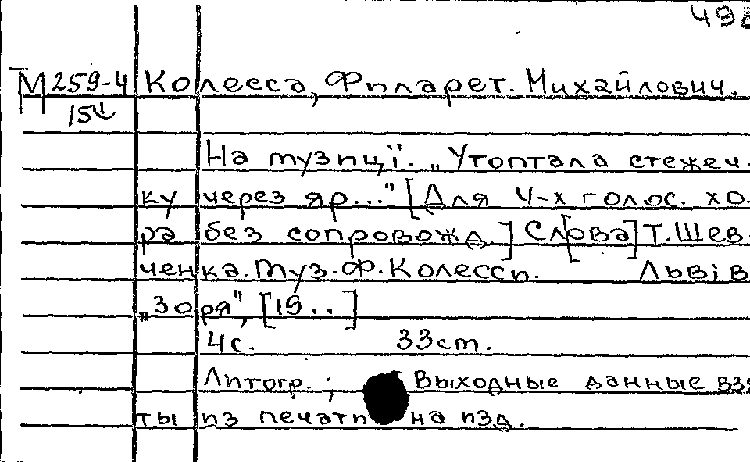 49
М 259-4 Колесса, Филарет. Михайлович.
154
На музицї. „Утоптала стежеч-
ку через яр..." [Для 4-х голос. хо-
ра без сопровожд.] Сл[ова] Т. Шев-
ченка. Муз. Ф. Колесси. Львів
„Зоря", [19..]
4с. 33 см.
Литогр.; Выходные данные взя
ты из печати на изд.